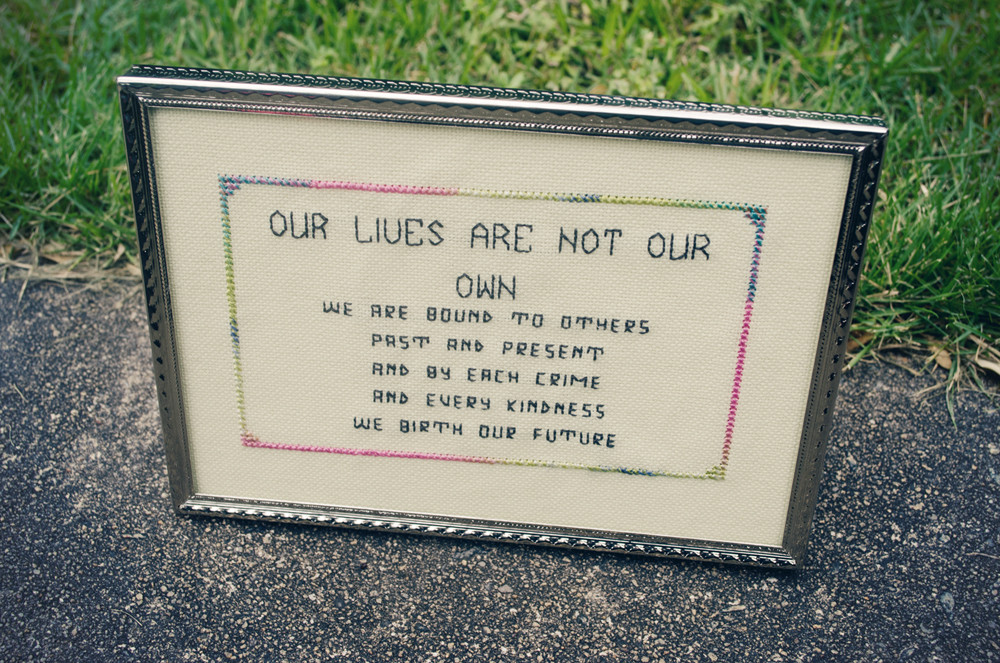 OUR LIVES ARE NOT OUR
OWN
WE ARE BOUND TO OTHERS
PAST AND PRESENT
AND BY EACH CRIME
AND EVERY KINDNESS
WE BIRTH OUR FUTURE